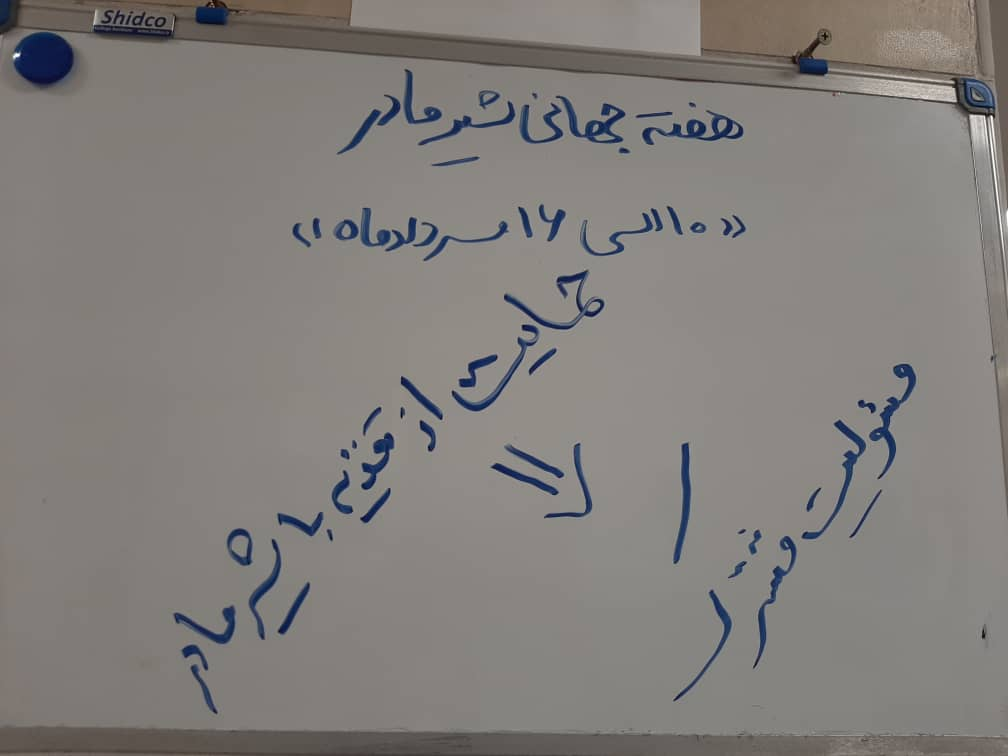 Shidco
هفته جهانی شیر مادر
«۱۰ الی ۱۶ مردادماه»
حمایت از تغذیه با شیر مادر
مسئولیت مشترک